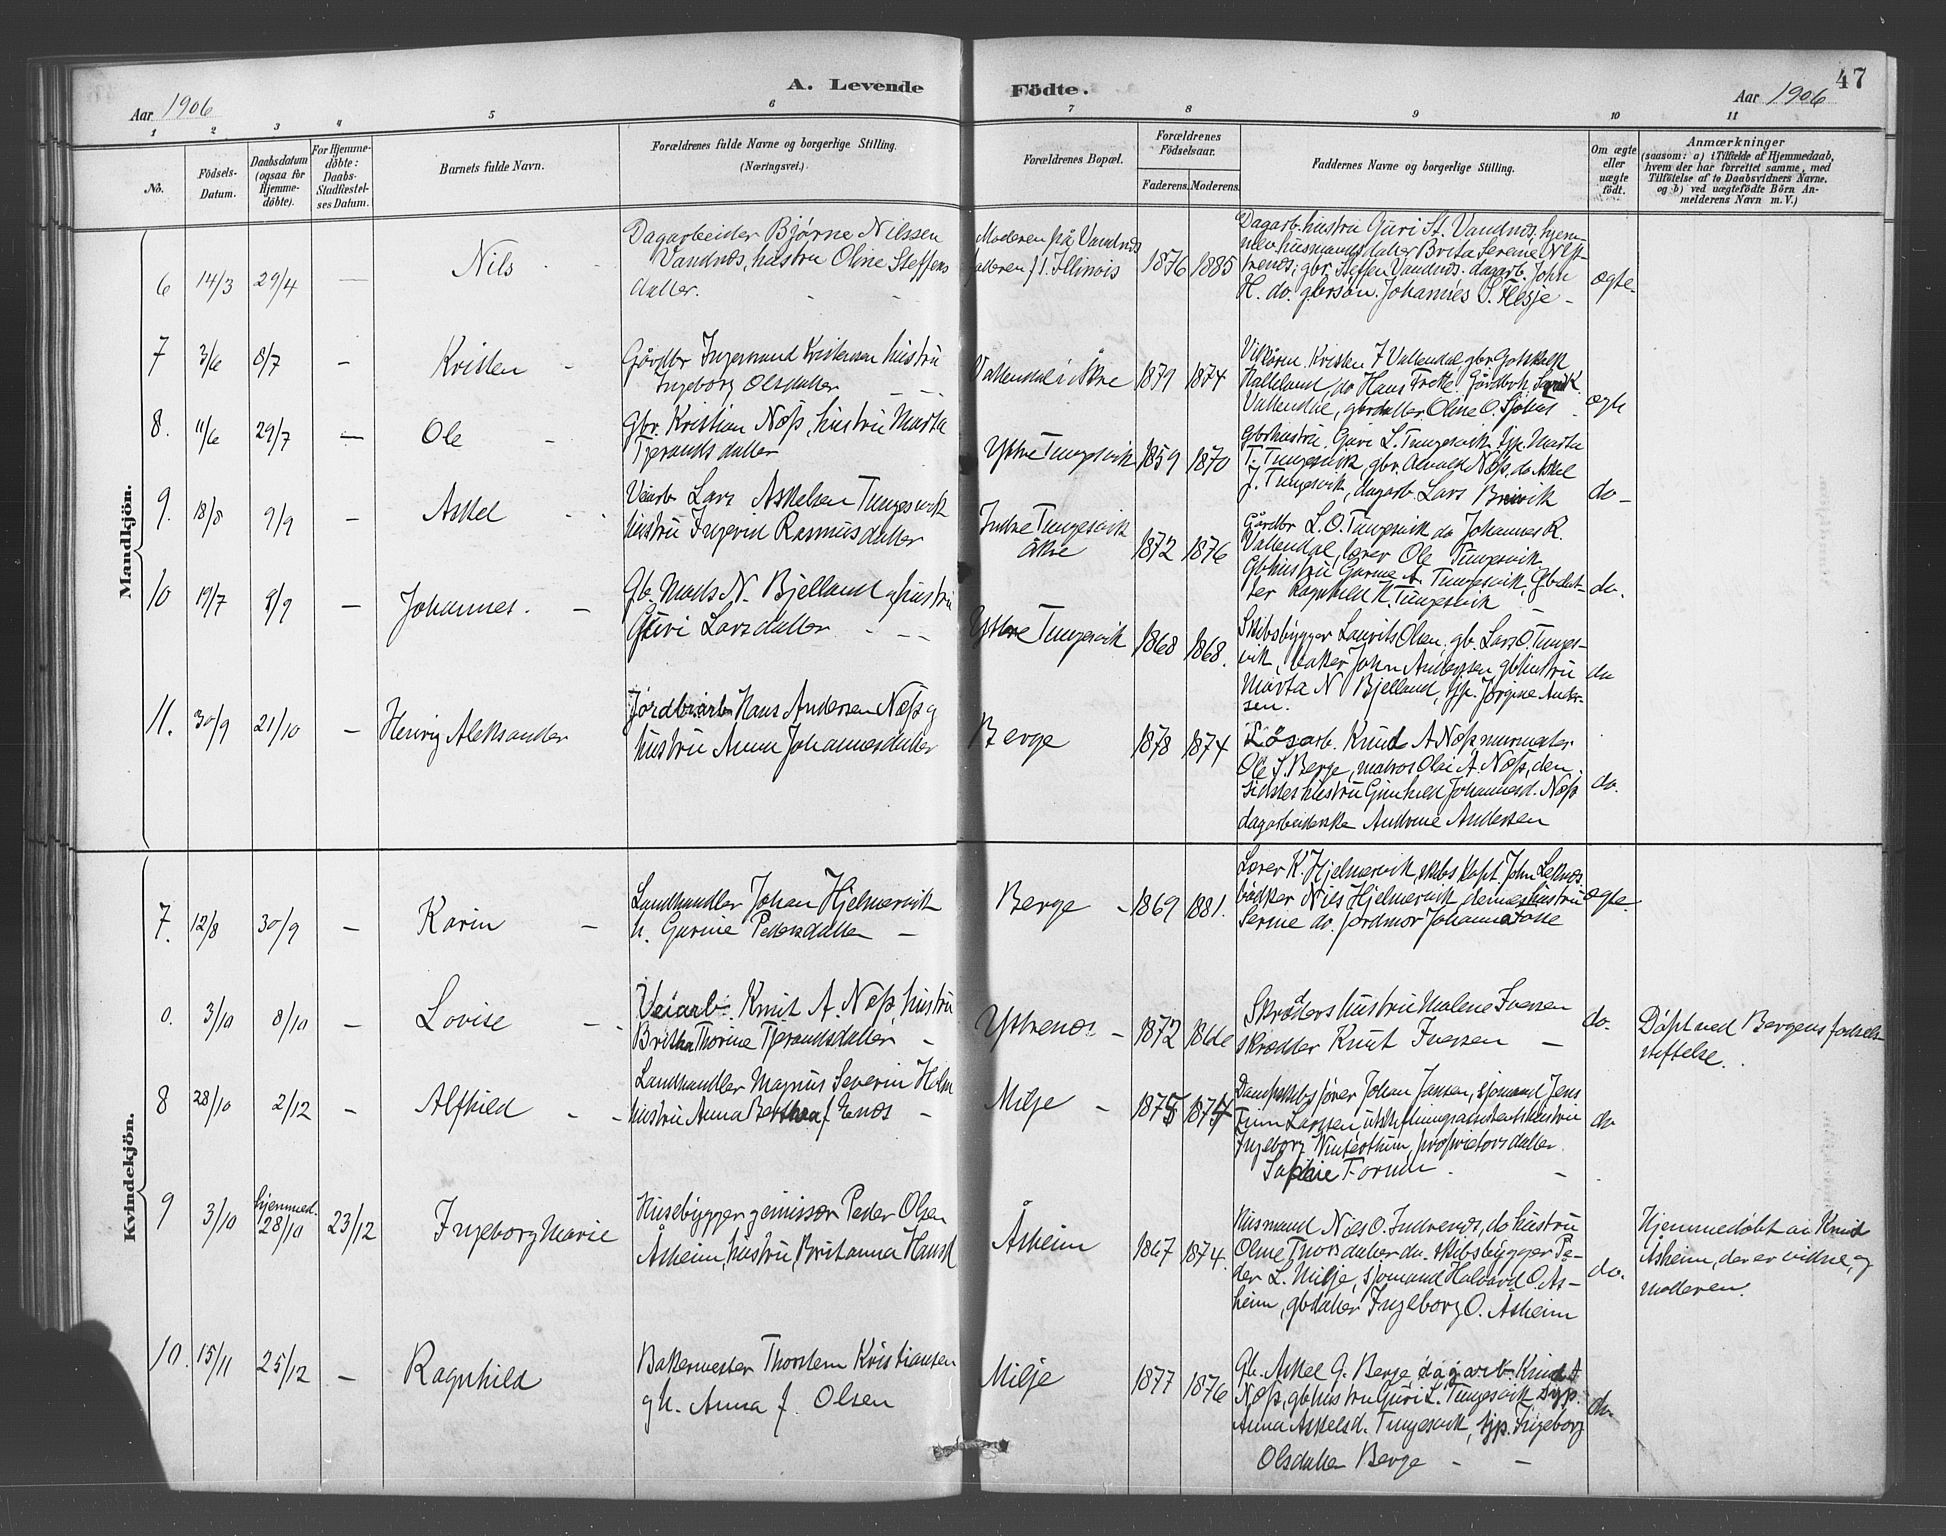 A. Levende Födte.
47
Aar 1906
Aar 1906
1 2 3 4 5 6 7 8 9 10 11
No.
Födsels-Datum.
Daabsdatum (ogsaa for Hjemme-döbte).
For Hjemme-döbte: Daabs-Stadfæstel-ses Datum.
Barnets fulde Navn.
Forældrenes fulde Navne og borgerlige Stilling.
(Næringsvei.)
Forældrenes Bopæl.
Forældrenes Födselsaar.
Faderens. Moderens.
Faddernes Navne og borgerlige Stilling.
Om ægte eller uægte födt.
Anmærkninger
(saasom: a) i Tilfælde af Hjemmedaab, hvem der har forrettet samme, med Tilföielse af to Daabsvidners Navne. og b) ved uægtefödte Börn An-melderens Navn m. V.)
Mandkjön.
6 14/3 29/4 — Nils
Dagarbeider Bjørne Nilssen
Vandnæs, hustru Oline Steffens
datter.
Moderen på Vandnæs
faderen i Illinois
1876 1885
Dagarb.hustru Guri St. Vandnæs, hjem-
husmandsdatter Brita Serene
gbr. Steffen Vandnæs. dagarb. John
H. do. gbrsøn. Johannes S. Hesje
ægte
7 3/6 8/7 — Kristen
Gårdbr Ingemund Kristensen hustru
Ingeborg Olsdatter
Vallendal i Åkre
1879 1874
Kristen J Vallendal gbr. Gotskalk
Halleland, do Hans Gårdbrh.
Vallendal, gbrdatter Oline O.
ægte
8. 11/6 29/7 — Ole
Gbr. Kristian Næss, hustru Marta
Tjerandsdatter
Ystre Tungesvik
1859 1870
Gbrhustru. Guri L. Tungesvik, pp. Marta
T. Tungesvik, gbr. Næss, do Askel
J. Tungesvik, dagarb. Lars
do
9. 18/8 9/9 — Askel
Veiarb Lars Askelsen Tungesvik
hustru Ingerid Rasmusdatter
Indre Tungesvik
Åkre
1872 1876
Gårdbr L.O. Tungesvik do Johannes R.
Vallendal, lærer Ole Tungesvik
Gbhustru Gurine A. Tungesvik, Gbdat-
ter Ragnhild K. Tungesvik
do.
10 19/7 9/9 — Johannes.
Gb. Mads N. Bjelland og hustru
Guri Larsdatter
Ystre Tungesvik
1868 1868.
Skibsbygger Laurits Olsen, gb. Lars O. Tunges-
vik, baker John Andersen gbhustru
Marta N Bjelland, pp. Jørgine Ander-
sen.
do
11. 30/9 21/10 — Henrig Aleksander
Jordbrarb Hans Andersen Næss og
hustru Anna Johannesdatter
Berge
1878 1874
Løsarb. Knud A Næss murmester
Ole S. Berge, matros Olai A. Næss, den
sidstes hustru Gunhild Johannesd. Næss
dagarbeiderske Andrine Andersen
do.
Kvindekjön.
7. 12/8 30/9 — Karin
Landhandler Johan Hjelmervik
h. Gurine Pedersdatter
Berge
1869 1881.
Lærer K. Hjelmervik, skibskapt. John Leknæs
bødker Nils Hjelmervik dennes hustru
Serine do. jordmor Johanna Tosse
ægte
0. 3/10 8/10 — Lovise
Veiarb. Knut A. Næss, hustru
Britha Thorine Tjerandsdatter
Ystrenæs
1872 1866
Skræders hustru Malene Iversen
skrædder Knut Iversen
do.
Døpt ved Bergens fødsels-
stiftelse.
8 28/10 2/12 — Alfhild
Landhandler Magnus Severin Holm
hustru Anna Berthea f. Enæs
Milje
1875 1874
Dampskibsfører Johan Jansen, sjømand Jens
Finn Larssen, utskiftningsassistents hustru
Ingeborg Winterthun, proprietærsdatter
Sophie Forum
do
9 3/10 hjemmed. 28/10 23/12 Ingeborg Marie
Husebygger g emissær Peder Olsen
Åsheim, hustru, Britanna Hansd
Åsheim
1867 1874.
Husmand Nils O. Indrenæs, do hustru
Oline Thorsdatter do. skibsbygger Pe-
der L. Milje, sjømand Halvard O. Ås-
heim, gbdatter Ingeborg O. Åsheim
do.
Hjemmedøbt av Knud
Åsheim, der er vidne, og
moderen.
10. 15/11 25/12 — Ragnhild
Bakermester Thorstein Kristiansen
g h. Anna J. Olsen
Milje
1877 1876
Gb. Askel G. Berge dagarb. Knud A
Næss, gbhustru Guri L. Tungesvik syp.
Anna Askelsd. Tungesvik, syp. Ingeborg
Olsdatter Berge
do.